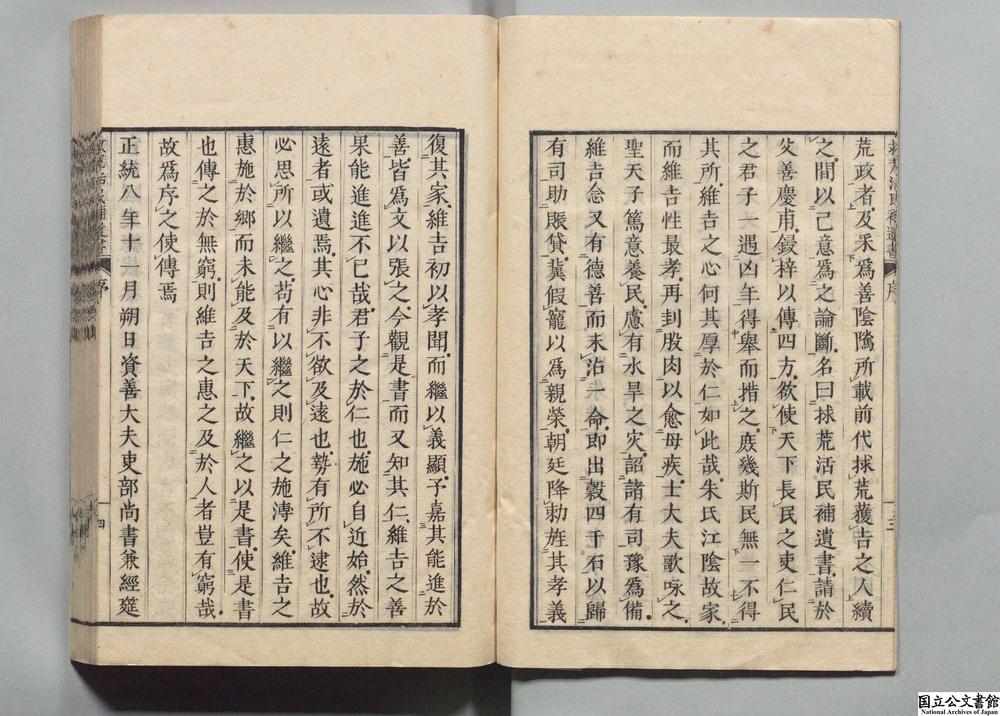 荒政者及采爲善陰隲所載前代捄荒獲吉之人續
之間以己意爲之論斷名曰捄荒活民補遺書請於
父善慶甫鋟梓以傳四方欲使天下長民之吏仁民
之君子一遇凶年得舉而措之庶幾斯民無一不得
其所維吉之心何其厚於仁如此哉朱氏江陰故家
而維吉性最孝再刲股肉以愈母疾士大夫歌咏之
聖天子篤意養民慮有水旱之灾詔諸有司豫爲備
維吉念父有德善而未沾一命即出穀四千石以歸
有司助賑貸冀假寵以爲親榮朝廷降勑旌其孝義
三
復其家維吉初以孝聞而繼以義顯予嘉其能進於
善皆爲文以張之今觀是書而又知其仁維吉之善
果能進進不已哉君子之於仁也施必自近始然於
遠者或遺焉其心非不欲及遠也勢有所不逮也故
必思所以繼之苟有以繼之則仁之施溥矣維吉之
惠施於鄉而未能及於天下故繼之以是書使是書
也傳之於無窮則維吉之惠之及於人者豈有窮哉
故爲序之使傳焉
正統八年十一月朔日資善大夫吏部尚書兼經筵
序
四
国立公文書館
National Archives of Japan